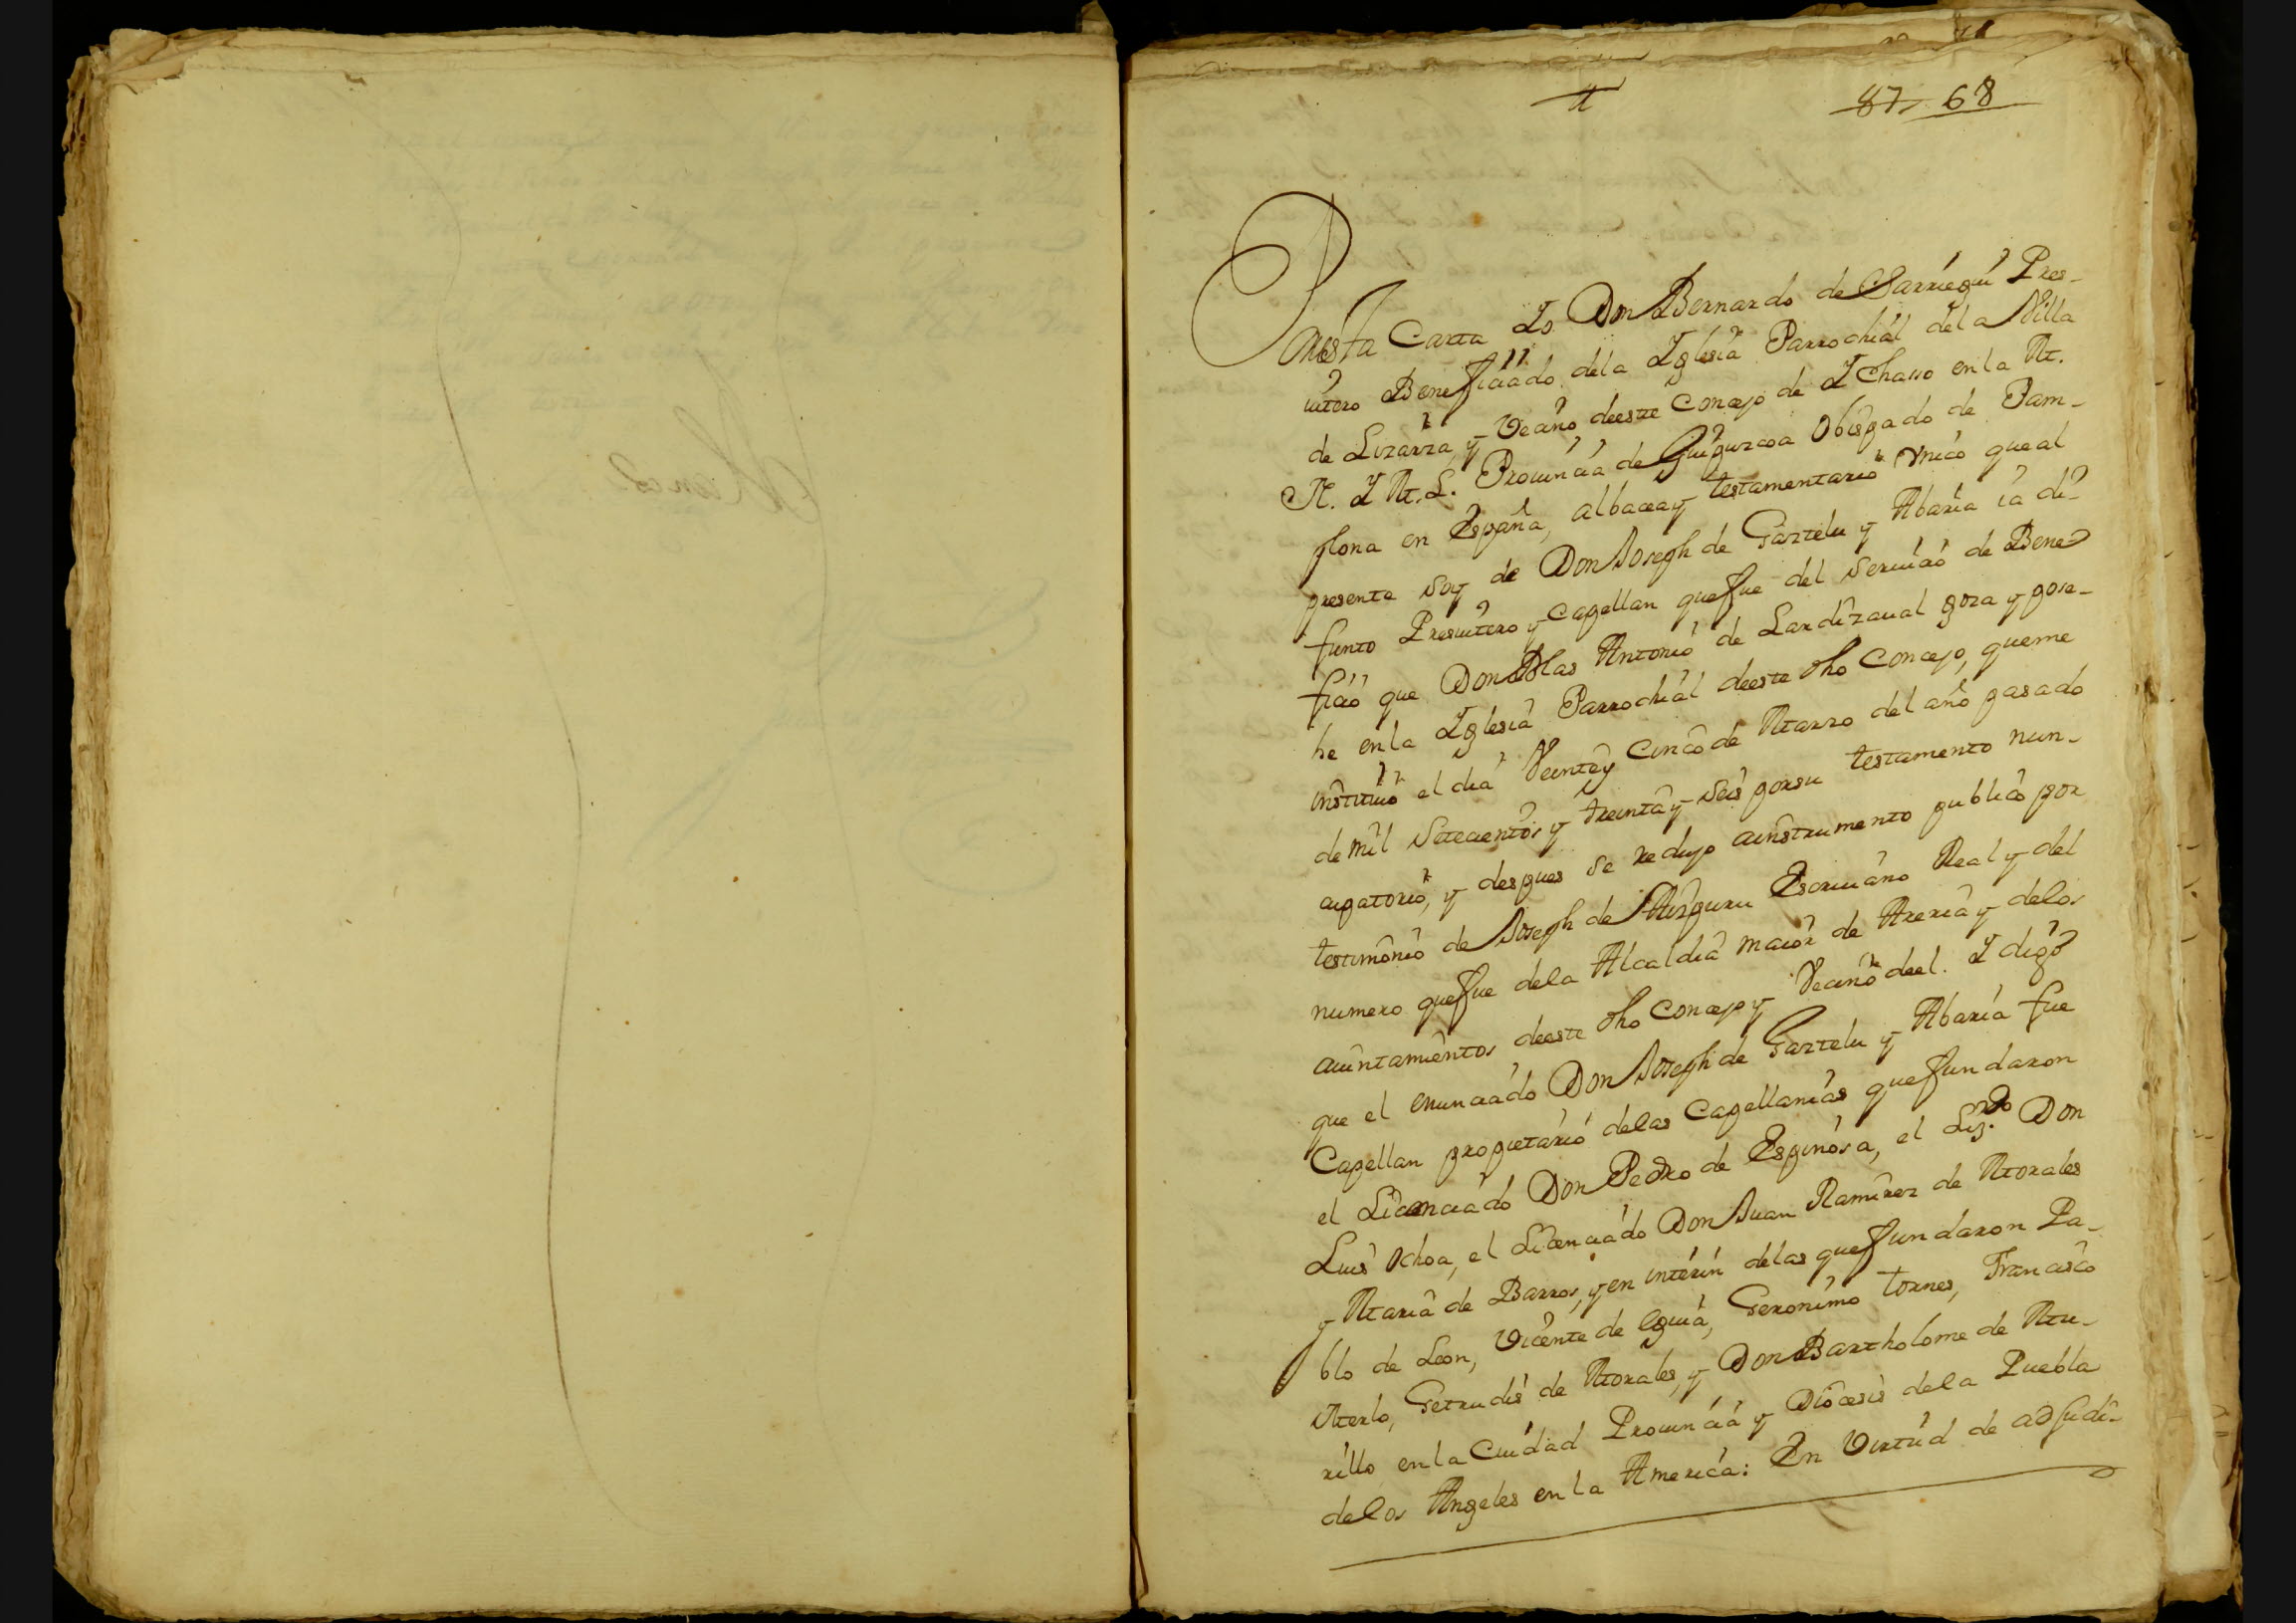 71
87 68
En esta Carta Yo Don Bernardo de Sarriegui Pres-
uitero Beneficiado dela Yglesia Parrochial dela Villa
de Lizarza, y Vecino deeste Concejo de YChasso en la M.
N. Y M. L. Prouincia de Guipuzcoa Obispado de Pam-
plona en España, albacea y testamentario Vnico que al
presente soy de Don Joseph de Garzelu y Abaria ia di-
funto Presuitero y Capellan quefue del seruicio de Bene-
ficio que Don Blas Antonio de Lardizaual goza y pose-
he en la Yglesia Parrochial deeste dho Concejo, queme
instituió el dia Veinte y Cinco de Marzo del año pasado
de mil Setecientos y treinta y seis porsu testamento nun-
cupatorio, y despues se redujo ainstrumento publico por
testimonio de Joseph de Aizpuru Escriuano Real y del
numero quefue dela Alcaldia maior de Areria y delos
aiuntamientos deeste dho Concejo y Vecino deel. Y digo
que el enunciado Don Joseph de Garzelu y Abaria fue
Capellan propietario delas Capellanias quefundaron
el Licenciado Don Pedro de Espinosa, el Liz.do Don
Luis Ochoa, el Licenciado Don Juan Ramirez de Morales
y Maria de Barros, y en interin delas quefundaron Pa-
blo de Leon, Vicente de Eguia, Geronimo tornes, Francisco
Merlo, Getrudis de Morales, y Don Bartholome de Mu-
rillo en la Ciudad Prouincia y Diocesis dela Puebla
delos Angeles en la America: En Virtud de adjudi-